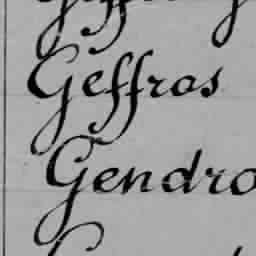 Geffras
Gendro